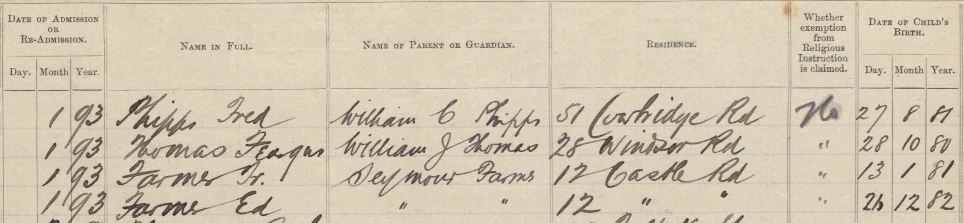 DATE OF ADMISSION OR RE-ADMISSION. NAME IN FULL. NAME OF PARENT OR GUARDIAN. RESIDENCE. Whether exemption from Religious Instruction is claimed. DATE OF CHILD'S BIRTH.
Day. Month Year. Day. Month Year.
1 93 Phipps Fred William C Phipps 51 Cowbridge Rd No 27 8 81
1 93 Thomas Feargus William J Thomas 28 Windsor Rd " 28 10 80
1 93 Farmer Fr. Seymour Farme 12 Castle Rd " 13 1 81
1 93 Farmer Ed " " 12 " " " 26 12 82